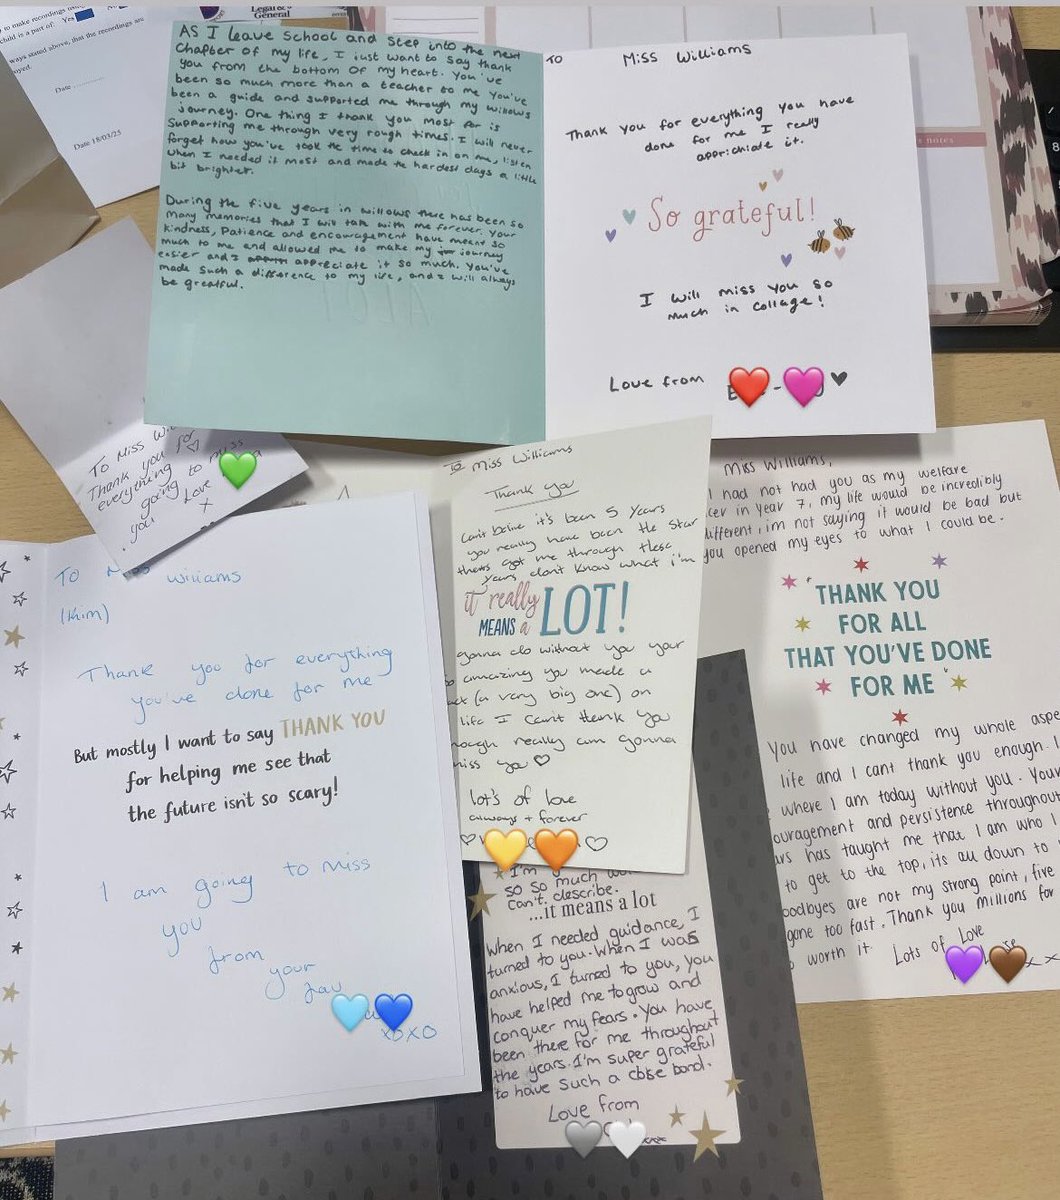 to make recordings
Yes
child is a part of:
ways stated above, that the recordings are
Date
Date 18/03/25
Legal &
General
notes
8
AS I leave school and step into the next
Chapter of my life, I just want to say thank
you from the bottom of my heart. You've
been so much more than a teacher to me you've
been a guide and supported me through my willows
journey. One thing I thank you most for is
supporting me through very rough times. I will never
forget how you've took the time to check in on me, listen
when I needed it most and made the hardest days a little
bit brighter.
During the five years in willows there has been so
many memories that I will take with me forever. Your
kindness, Patience and encouragement have meant so
much to me and allowed me to make my journey
easier and I appreciate it so much. You've
made such a difference to my life, and I will always
be greatful.
TO Miss Williams
Thank you for everything you have
done for me I really
apprichiate it.
So grateful!
I will miss you so
much in collage!
Love from
To Miss
Thank you for
everything
going to miss
you. Love
x
TO Miss Williams
(Kim)
Thank you for everything
you've done for me
But mostly I want to say THANK YOU
for helping me see that
the future isn't so scary!
I am going to miss
you
from
your
fav
xoxo
To Miss Williams
Thank you
Can't believe it's been 5 years
you really have been the star
thats got me through these
years don't know what i'm
it really
MEANS a LOT!
gonna do without you your
so amazing you made a
(a very big one) on
life I can't thank you
really am gonna
miss ya
lot's of love
always + forever
Miss Williams,
I had not had you as my welfare
in Year 7, my life would be incredibly
different, im not saying it would be bad but
you opened my eyes to what I could be.
THANK YOU
FOR ALL
THAT YOU'VE DONE
FOR ME
You have changed my whole
life and I cant thank you enough. I
where I am today without you. Your
and persistence throughout
has taught me that I am who I
to get to the top, its all down to
goodbyes are not my strong point, five
gone too fast. Thank you millions for
worth it. Lots of Love
xx
I'm
so so much
can't describe.
...it means a lot
When I needed guidance, I
turned to you. When I was
anxious, I turned to you, you
have helped me to grow and
conquer my fears. You have
been there for me throughout
the years. I'm super grateful
to have such a close bond.
Love from
xxx